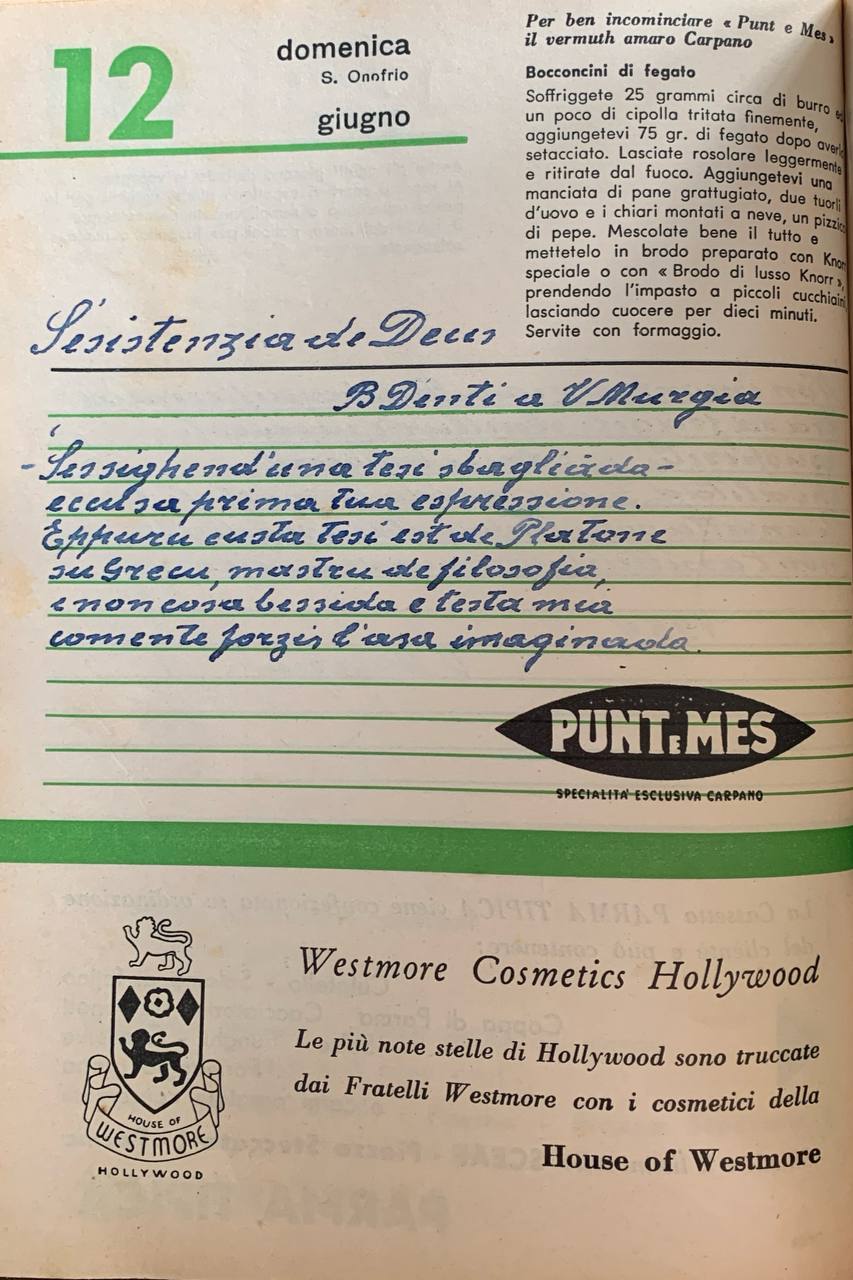 12
domenica
S. Onofrio
giugno
Per ben incominciare « Punt e Mes »
il vermuth amaro Carpano
Bocconcini di fegato
Soffriggete 25 grammi circa di burro ed
un poco di cipolla tritata finemente,
aggiungetevi 75 gr. di fegato dopo averlo
setacciato. Lasciate rosolare leggermente
e ritirate dal fuoco. Aggiungetevi una
manciata di pane grattugiato, due tuorli
d'uovo e i chiari montati a neve, un pizzico
di pepe. Mescolate bene il tutto e
mettetelo in brodo preparato con Knorr
speciale o con « Brodo di lusso Knorr »,
prendendo l'impasto a piccoli cucchiaini,
lasciando cuocere per dieci minuti.
Servite con formaggio.
S'esistenzia de Deus
B Denti a V Murgia
- Sessighend'una tesi sbagliada -
eccu sa prima tua espressione.
Eppuru custa tesi est de Platone
su Grecu, mastru de filosofia,
e non cosa bessida e testa mia
comente forzis l'asa imaginada.
PUNT E MES
SPECIALITA' ESCLUSIVA CARPANO
HOUSE OF
WESTMORE
HOLLYWOOD
Westmore Cosmetics Hollywood
Le più note stelle di Hollywood sono truccate
dai Fratelli Westmore con i cosmetici della
House of Westmore